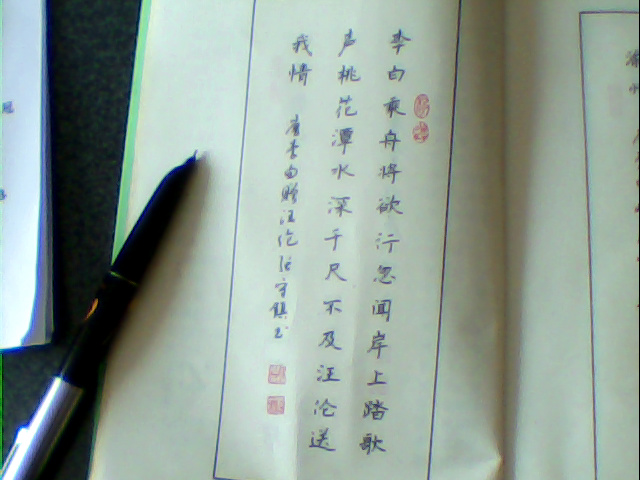 李白乘舟将欲行忽闻岸上踏歌
声桃花潭水深千尺不及汪伦送
我情
唐李白赠汪伦 张守镇书